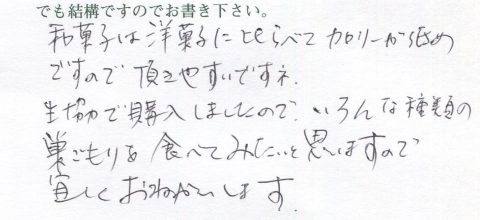 でも結構ですのでお書き下さい。
和菓子は洋菓子に比らべてカロリーが低め
ですので頂きやすいですネ.
生協で購入しましたので、いろんな種類の
巣ごもりを食べてみたいと思いますので
宜しくおねがいします